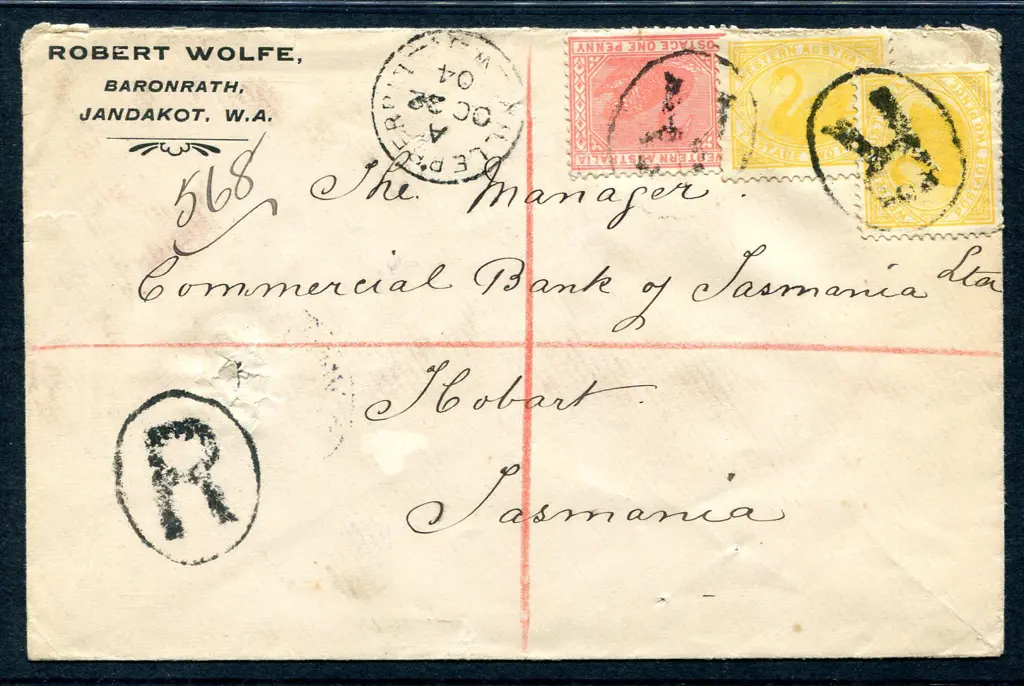 ROBERT WOLFE,
BARONRATH,
JANDAKOT. W.A.
568
4
OC 22
04
The Manager
Commercial Bank of Tasmania Ltd
Hobart
Tasmania
R
POSTAGE ONE PENNY
WESTERN AUSTRALIA
R
R